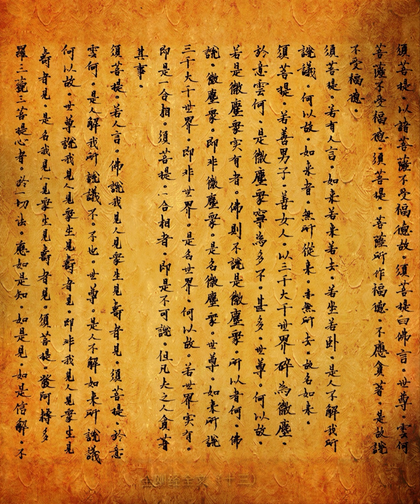 須菩提。以諸菩薩不受福德故。須菩提白佛言。世尊。云何
菩薩不受福德。須菩提。菩薩所作福德。不應貪著。是故說
不受福德。
須菩提。若有人言。如來若來若去。若坐若臥。是人不解我所
說議。何以故。如來者。無所從來。亦無所去。故名如來。
須菩提。若善男子。善女人。以三千大千世界。碎為微塵。
於意雲何。是微塵眾。寧為多不。甚多。世尊。何以故。
若是微塵眾實有者。佛則不說是微塵眾。所以者何。佛
說。微塵眾。即非微塵眾。是名微塵眾。世尊。如來所說
三千大千世界。即非世界。是名世界。何以故。若世界實有。
即是一合相。須菩提。一合相者。即是不可說。但凡夫之人貪著
其事。
須菩提。若人言。佛說我見人見眾生見壽者見。須菩提。於意
雲何。是人解我所說議不。不也。世尊。是人不解如來所說議
何以故。世尊說我見人見眾生見壽者見。即非我見人見眾生見
壽者見。是名我見人見眾生見壽者見。須菩提。發阿耨多
羅三藐三菩提心者。於一切法。應如是知。如是見。如是信解。不
金剛經全文（十三）